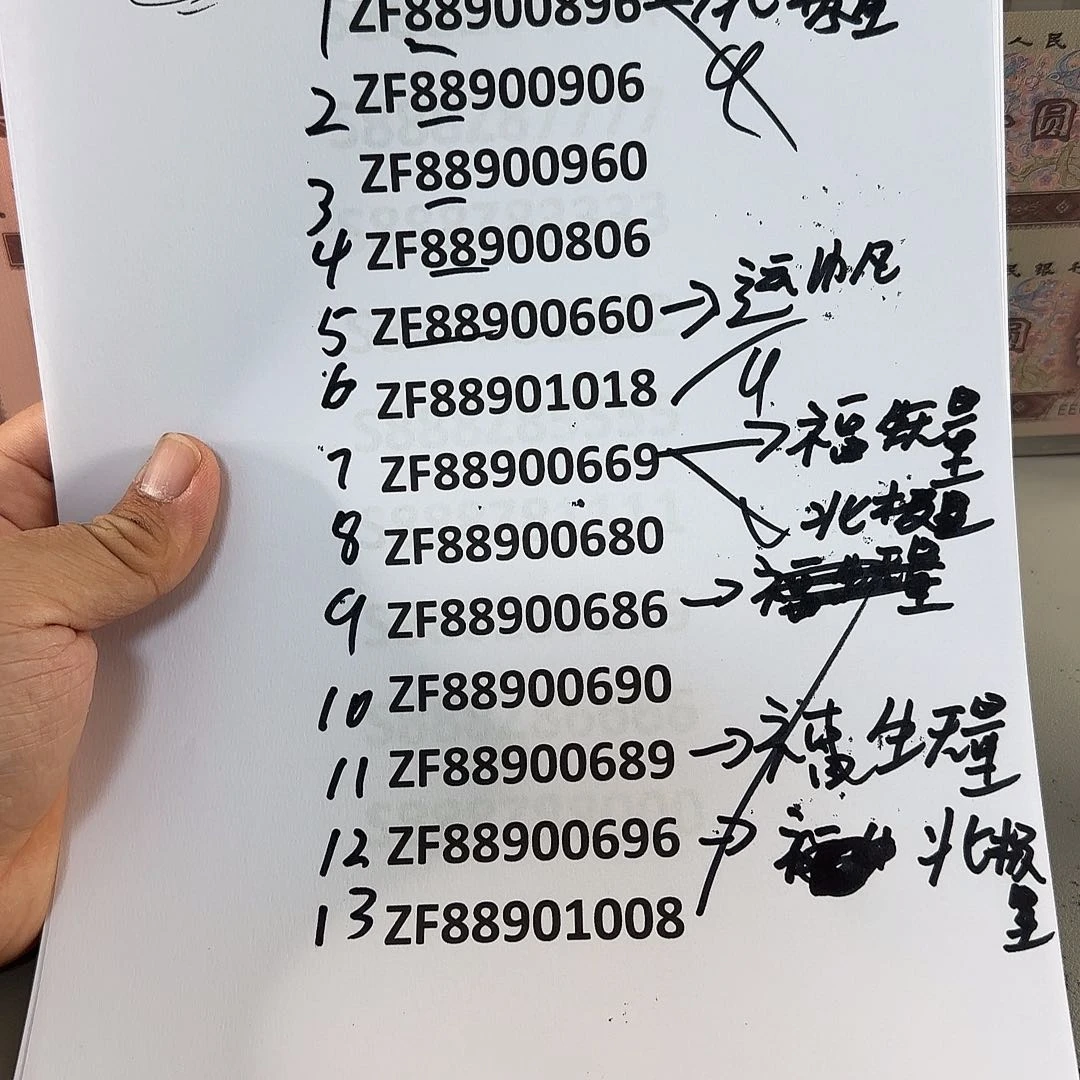 1 ZF88900896
2 ZF88900906
3 ZF88900960
4 ZF88900806
5 ZF88900660 → 运
4
6 ZF88901018
7 ZF88900669 → 福 量
北极星
8 ZF88900680
9 ZF88900686 →
10 ZF88900690
11 ZF88900689 → 福生无量
12 ZF88900696 → 北极
星
13 ZF88901008
人民
圆
民银行
圆